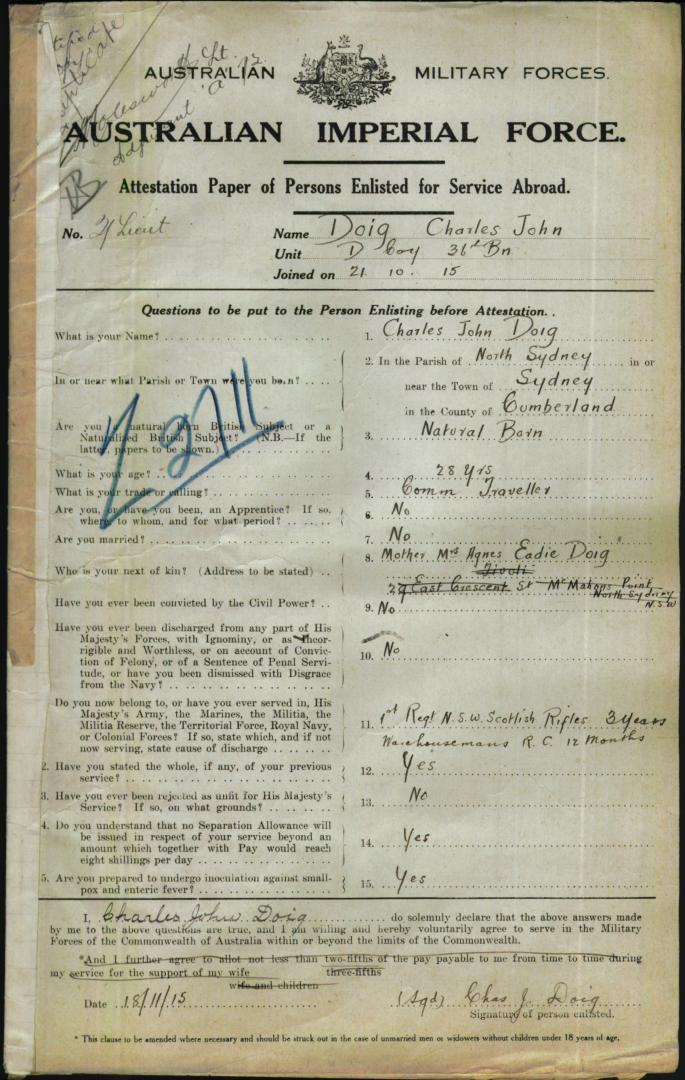 Certified
Halesworth Lt
Adjutant "A"
AUSTRALIAN MILITARY FORCES.
AUSTRALIAN IMPERIAL FORCE.
Attestation Paper of Persons Enlisted for Service Abroad.
No. 2/Lieut Name Doig Charles John
Unit D Coy 36th Bn
Joined on 21. 10. 15
Questions to be put to the Person Enlisting before Attestation.
What is your Name? 1. Charles John Doig
In or near what Parish or Town were you born? 2. In the Parish of North Sydney in or
near the Town of Sydney
in the County of Cumberland
Are you a natural born British Subject or a
Naturalized British Subject? (N.B.—If the
latter, papers to be shown.) 3. Natural Born
What is your age? 4. 28 Yrs
What is your trade or calling? 5. Comm Traveller
Are you, or have you been, an Apprentice? If so,
where, to whom, and for what period? 6. No
Are you married? 7. No
Who is your next of kin? (Address to be stated) 8. Mother Mrs Agnes Eadie Doig
Tivoli
29 East Crescent St McMahons Point
North Sydney
N.S.W
Have you ever been convicted by the Civil Power? 9. No
Have you ever been discharged from any part of His
Majesty's Forces, with Ignominy, or as Incor-
rigible and Worthless, or on account of Convic-
tion of Felony, or of a Sentence of Penal Servi-
tude, or have you been dismissed with Disgrace
from the Navy? 10. No
Do you now belong to, or have you ever served in, His
Majesty's Army, the Marines, the Militia, the
Militia Reserve, the Territorial Force, Royal Navy,
or Colonial Forces? If so, state which, and if not
now serving, state cause of discharge 11. 1st Regt N.S.W. Scottish Rifles 3 years
Warehousemans R. C. 12 months
2. Have you stated the whole, if any, of your previous
service? 12. Yes
3. Have you ever been rejected as unfit for His Majesty's
Service? If so, on what grounds? 13. No
4. Do you understand that no Separation Allowance will
be issued in respect of your service beyond an
amount which together with Pay would reach
eight shillings per day 14. Yes
5. Are you prepared to undergo inoculation against small-
pox and enteric fever? 15. Yes
I, Charles John Doig do solemnly declare that the above answers made
by me to the above questions are true, and I am willing and hereby voluntarily agree to serve in the Military
Forces of the Commonwealth of Australia within or beyond the limits of the Commonwealth.
*And I further agree to allot not less than two-fifths of the pay payable to me from time to time during
three-fifths
my service for the support of my wife
wife and children
Date 18/11/15 (Sgd) Chas J. Doig
Signature of person enlisted.
* This clause to be amended where necessary and should be struck out in the case of unmarried men or widowers without children under 18 years of age.